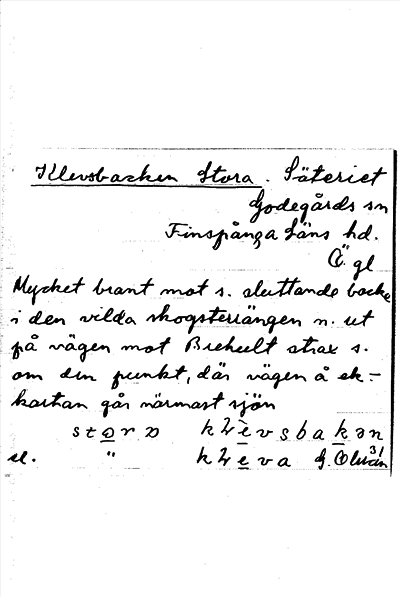 Klevsbacken Stora. Säteriet
Godegårds sn
Finspånga läns hd.
Ö.gl
Mycket brant mot s. sluttande backe
i den vilda skogsterrängen n. ut
på vägen mot Brehult strax s.
om den punkt, där vägen å ek.-
kartan går närmast sjön
el. "